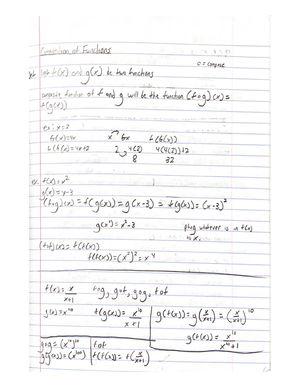 Connection of Functions
o = compose
let f(x) and g(x) be two functions
composite function of f and g will be the function (f∘g)(x) =
f(g(x))
ex: x=2
g(x)=4x x → 4x f(g(x))
2 4(2) 4(4(2))+2
8 32
ex. f(x)=x²
g(x)=x-3
(f∘g)(x) = f(g(x)) = g(x-3) = f(g(x)) = (x-3)²
g(x²) = x²-3 plug whatever is in f(x)
(f∘f)(x) = f(f(x))
f(f(x)) = (x²)² = x⁴
f(x) = x/x+1 f∘g, g∘f, g∘g, f∘f
g(x) = x¹⁰ f(g(x)) = x¹⁰/x+1 g(f(x)) = g(x/x+1) = (x/x+1)¹⁰
g(f(x)) = x¹⁰/x¹⁰+1
g∘g = (x¹⁰)¹⁰ f∘f
g(g(x)) = (x¹⁰⁰) f(f(x)) = f(x/x+1)